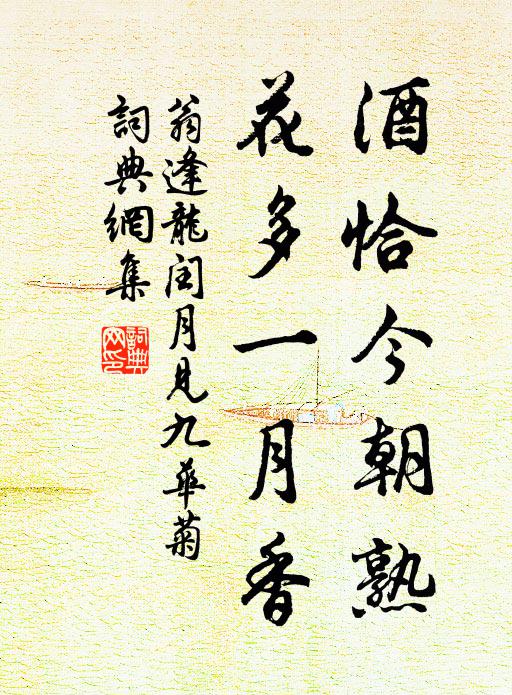 酒恰今朝熟
花多一月香
翁逢龍閏月見九華菊
詞典網集
詞典网印